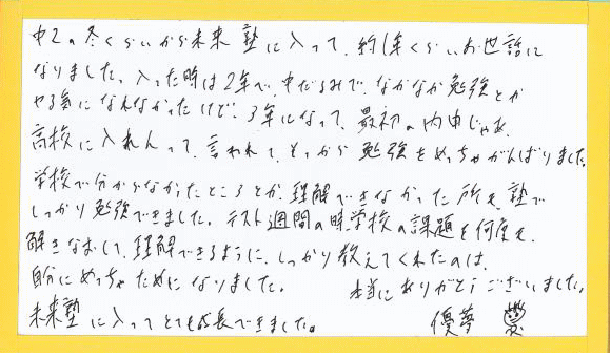 中2の冬くらいから未来塾に入って、約1年くらいお世話に
なりました。入った時は2年で、中だるみで、なかなか勉強とか
やる気になれなかったけど、3年になって、最初の内申じゃあ、
高校に入れんって、言われて、そっから勉強をめっちゃがんばりました。
学校で分からなかったところとか、理解できなかった所を、塾で
しっかり勉強できました。テスト週間の時、学校の課題を何度も、
解きなおして、理解できるように、しっかり教えてくれたのは、
自分にめっちゃためになりました。 本当にありがとうございました。
未来塾に入ってとても成長できました。 優夢